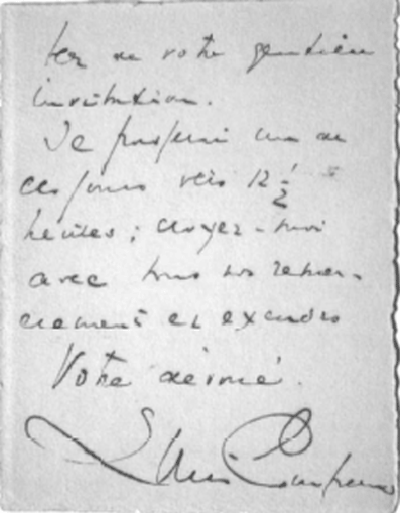 ter de votre
invitation.
Je passerai un de
ces jours vers 12 ½
heures ; croyez-moi
avec tous nos remer-
ciements et excuses
Votre dévoué.
Louis